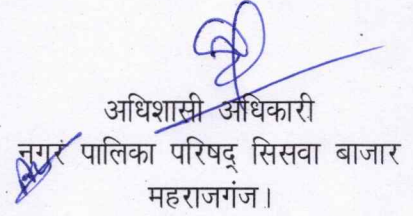 अधिशासी अधिकारी
नगर पालिका परिषद् सिसवा बाजार
महराजगंज।